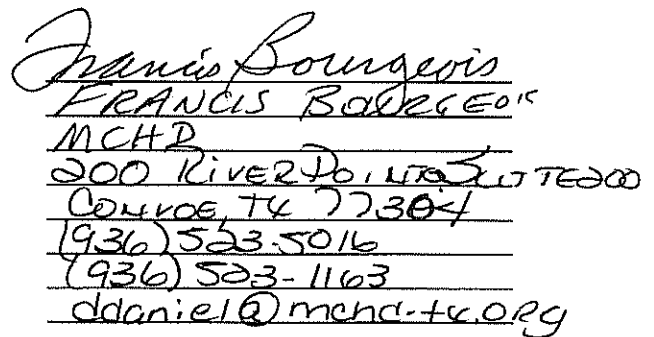 Francis Bourgeois
FRANCIS BOURGEOIS
MCHD
200 RIVER POINTE SUITE 200
CONROE, TX 77304
(936) 523-5016
(936) 523-1163
ddaniel@mchd-tx.org